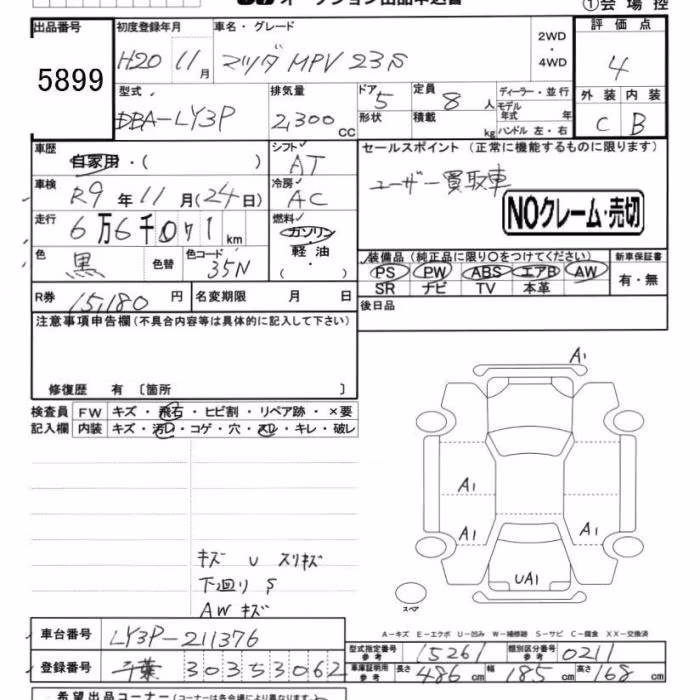 オークション出品申込書
①会場控
出品番号
5899
初度登録年月
H20 11月
車名・グレード
マツダ MPV 23S
2WD
・
4WD
評価点
4
型式
DBA-LY3P
排気量
2,300 CC
ドア 5
定員 8 人
形状
積載 kg
ディーラー・並行
モデル年式 年
ハンドル 左・右
外装 内装
C B
車歴 自家用・( )
シフト AT
車検 R9年11月(24日)
冷房 AC
走行 6万6千071km
燃料 ガソリン
軽油
( )
色 黒 色替
色コード 35N
R券 15,180円
名変期限 月 日
セールスポイント (正常に機能するものに限ります)
ユーザー買取車
NOクレーム・売切
装備品(純正品に限り○をつけてください)
PS PW ABS エアB AW
SR ナビ TV 本革
新車保証書
有・無
後日品
注意事項申告欄(不具合内容等は具体的に記入して下さい)
修復歴 有 〔箇所 〕
検査員記入欄
FW キズ・飛石・ヒビ割・リペア跡・×要
内装 キズ・汚レ・コゲ・穴・スレ・キレ・破レ
キズ U スリキズ
下廻り S
AWキズ
A1
A1
A1
A1
UA1
スペア
A-キズ E-エクボ U-凹み W-補修跡 S-サビ C-腐食 XX-交換済
車台番号 LY3P-211376
登録番号 千葉 303 5 3062
型式指定番号参考 15261
類別区分番号参考 0211
車庫証明用参考 長さ 486cm 幅 185cm 高さ 168cm
希望出品コーナー